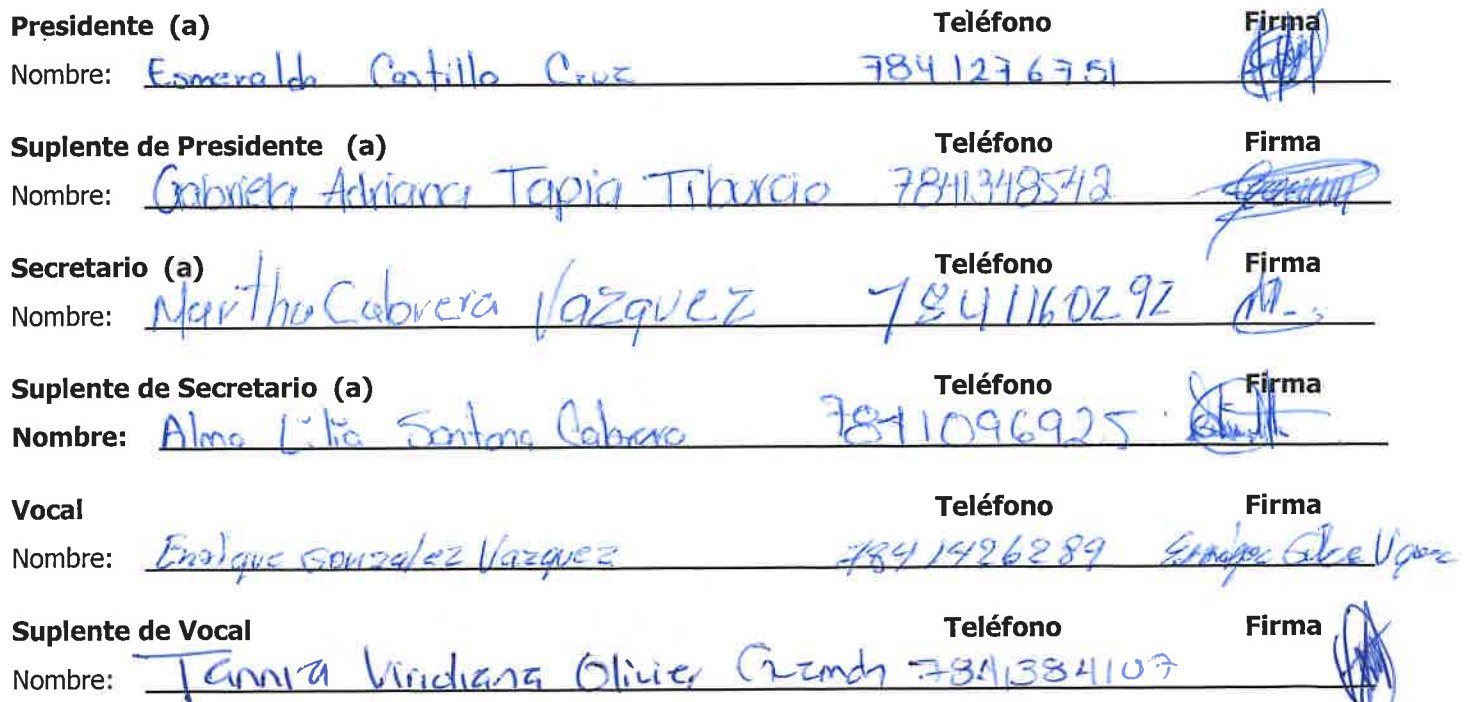 Presidente (a) Teléfono Firma
Nombre: Esmeralda Castillo Cruz 7841276751
Suplente de Presidente (a) Teléfono Firma
Nombre: Gabriela Adriana Tapia Tiburcio 7841348542
Secretario (a) Teléfono Firma
Nombre: Martha Cabrera Vazquez 7841160292
Suplente de Secretario (a) Teléfono Firma
Nombre: Alma Lilia Santana Cabrera 7841096925
Vocal Teléfono Firma
Nombre: Enrique Gonzalez Vazquez 7841426289
Suplente de Vocal Teléfono Firma
Nombre: Tannia Viridiana Olivier 7841384107